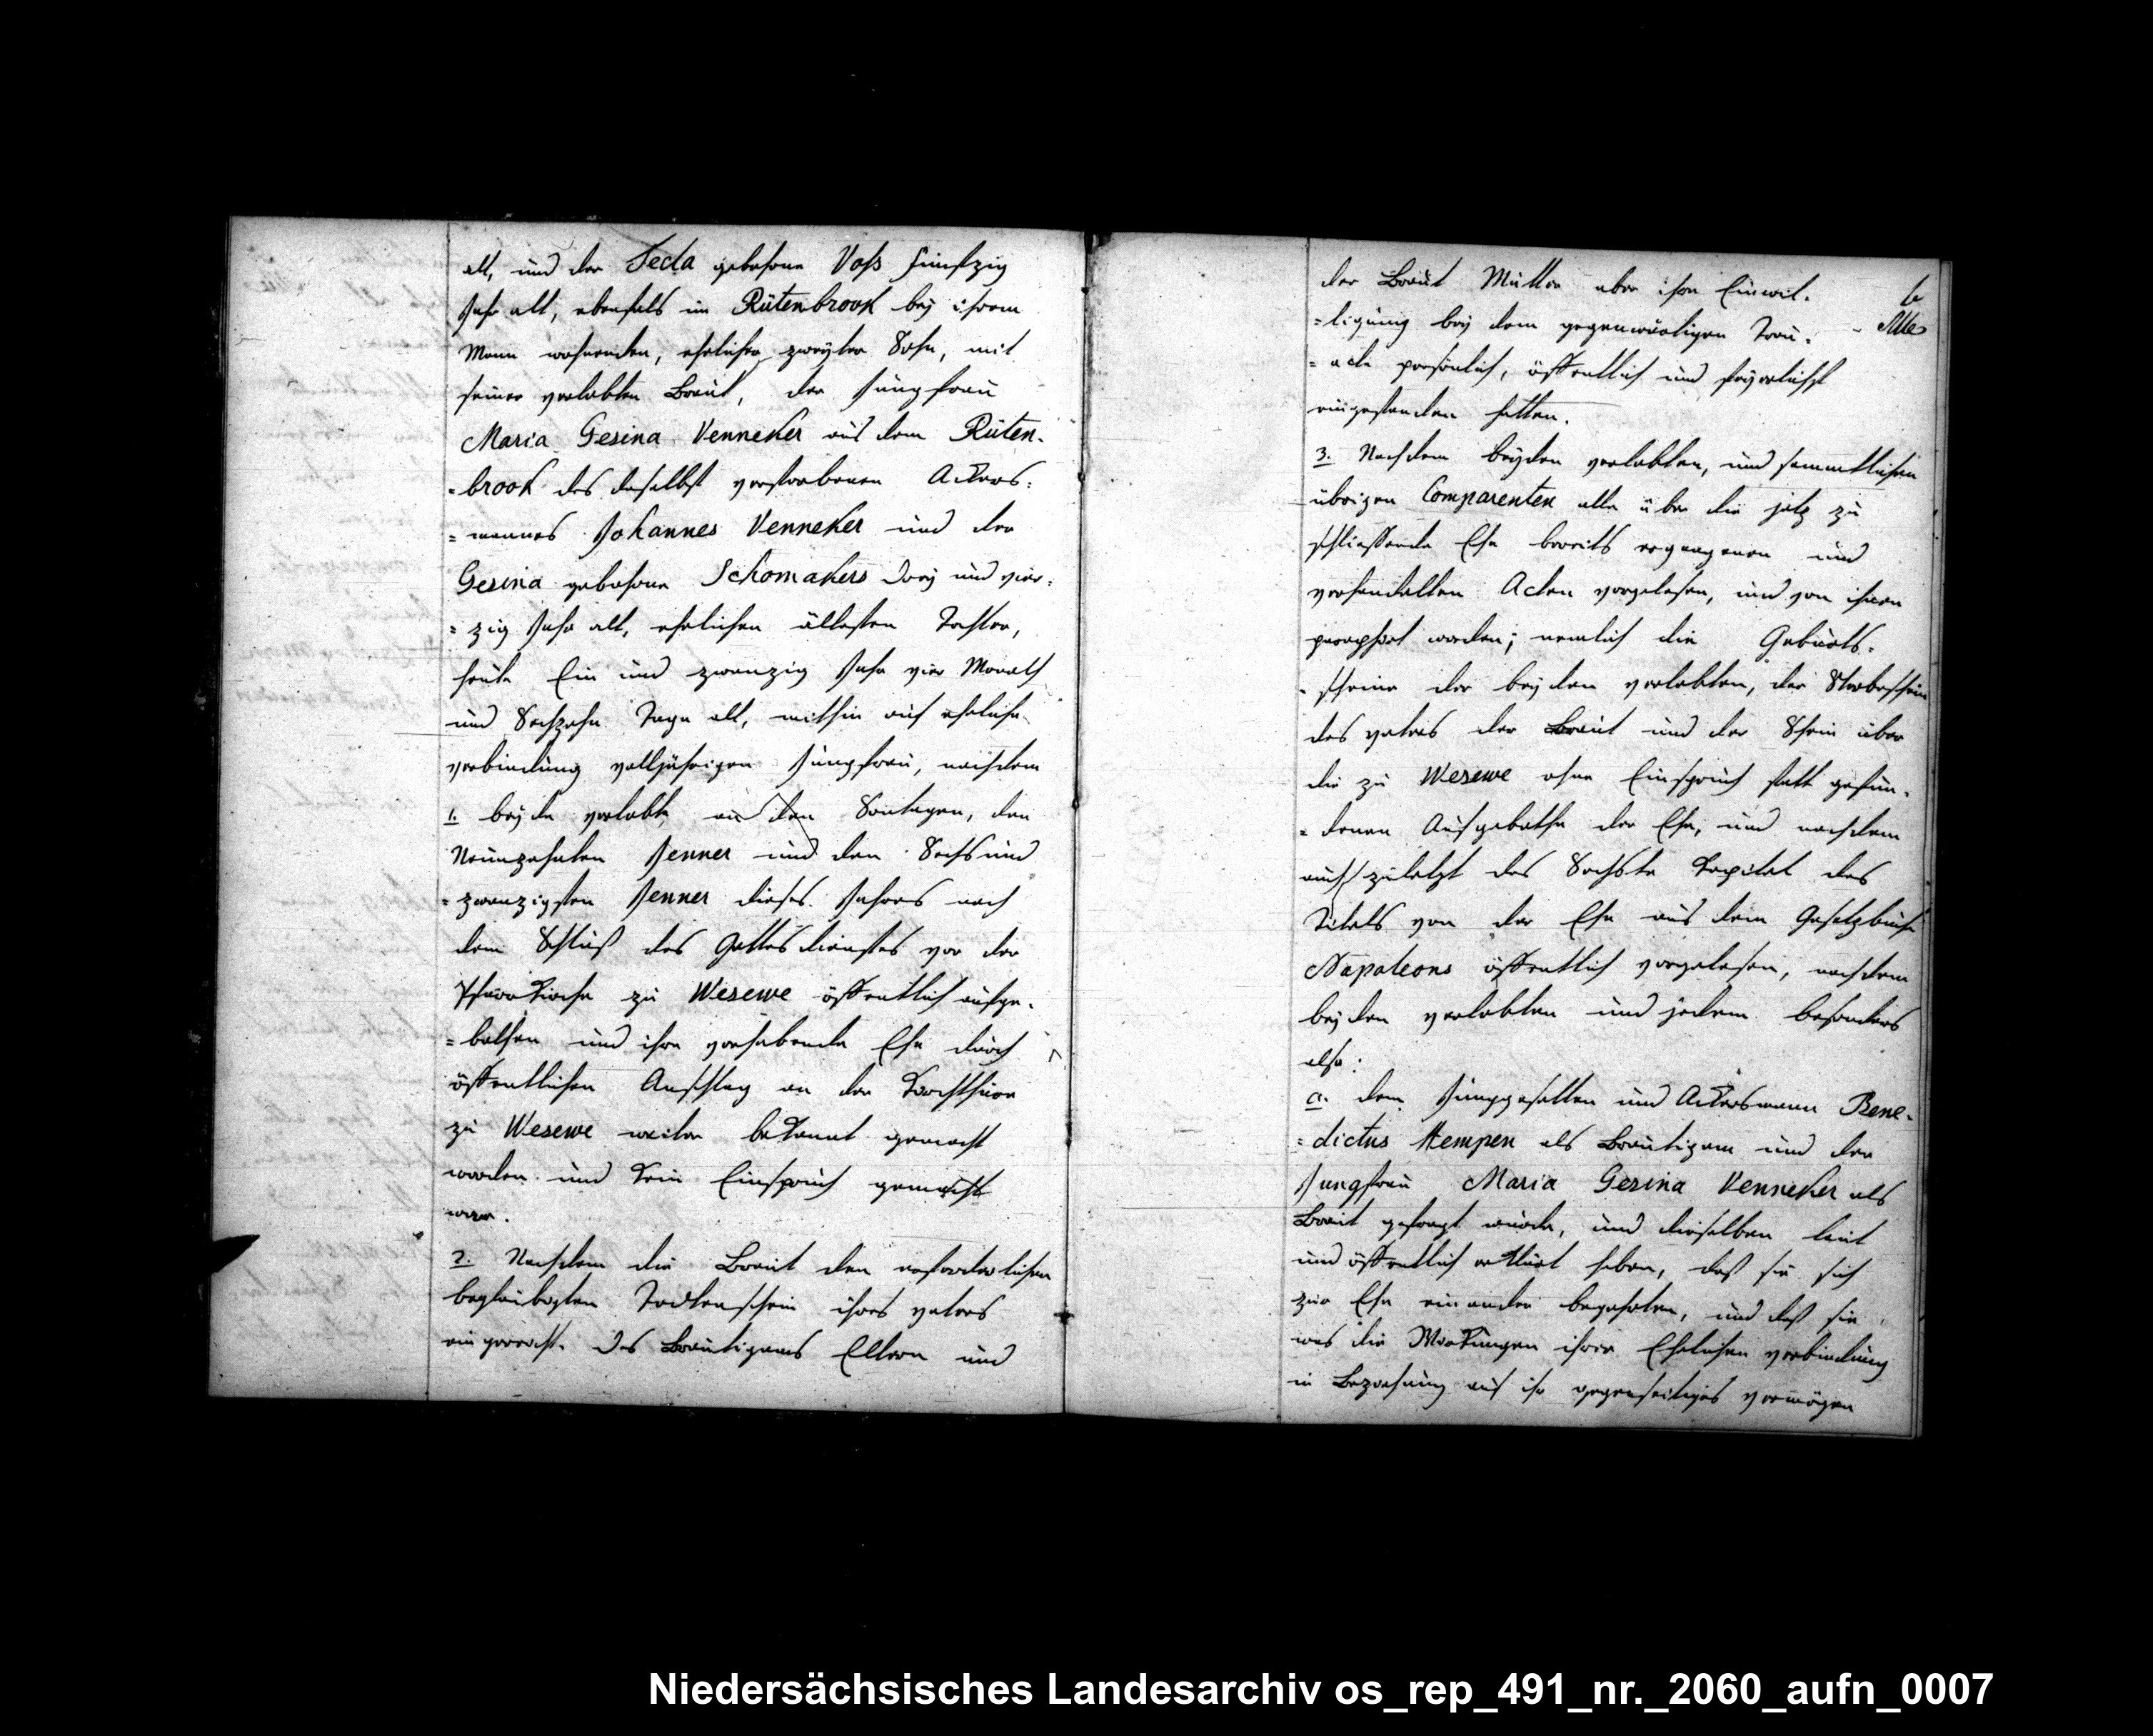 alt, und der Tecla gebohrne Voß fünfzig
Jahr alt, ebenfals im Rütenbrook bey ihrem
Mann wohnenden, ehelicher zweyter Sohn, mit
seiner verlobten Braut, der Jungfrau
Maria Gesina Venneker aus dem Rüten-
-brook des daselbst verstorbenen Ackers-
=mannes Johannes Venneker und der
Gesina gebohrne Schomakers drey und vier-
=zig Jahr alt, ehelichen ältesten Tochter,
heute Ein und zwanzig Jahr vier Monath
und Sechzehn Tage alt, mithin auf eheliche
verbindung volljährigen Jungfrau, nachdem
1. beyde verlobte an den Sontagen, den
Neunzehnten Jenner und den Sechs und
=zwanzigsten Jenner dieses Jahres nach
dem Schluß des Gottesdienstes vor der
Pfarrkirche zu Wesewe öffentlich aufge-
=bothen und ihre vorhabende Ehe durch
öffentlichen Anschlag an der Kirchthüre
zu Wesewe weiter bekannt gemacht
worden und kein Einspruch gemacht
war.
2. Nachdem die Braut den erforderlichen
beglaubigten Todtenschein ihres vaters
eingereicht. des Bräutigams Eltern und
der Braut Mutter aber ihre Einwil-
=ligung bey dem gegenwärtigen Trau-
=acte persönlich, öffentlich und feyerlichst
eingestanden hatten.
3. Nachdem beyden verlobten, und sammtlichen
übrigen Comparenten alle über die jetz zu
schliessende Ehe bereits ergangenen und
verhandelten Acten vorgelesen, und von ihnen
paraphirt worden; nemlich die Geburts-
-scheine der beyden verlobten, der Sterbeschein
des vaters der Braut und der Schein über
die zu Wesewe ohne Einspruch statt gefun-
=denen Aufgebothe der Ehe, und nachdem
auch zuletzt das Sechste Kapitel des
Titels von der Ehe aus dem Gesetzbuche
Napoleons öffentlich vorgelesen, nachdem
beyden verlobten und jedem besonders
also:
a. dem Junggesellen und Ackersmann Bene-
=dictus Hempen als Bräutigam und der
Jungfrau Maria Gesina Venneker als
Braut gefragt wurde, und dieselben laut
und öffentlich erklärt haben, daß sie sich
zur Ehe einander begehrten, und daß sie
was die Wirkungen ihrer Ehelichen verbindung
in Beziehung auf ihr gegenseitiges vermögen
Niedersächsisches Landesarchiv os_rep_491_nr._2060_aufn_0007